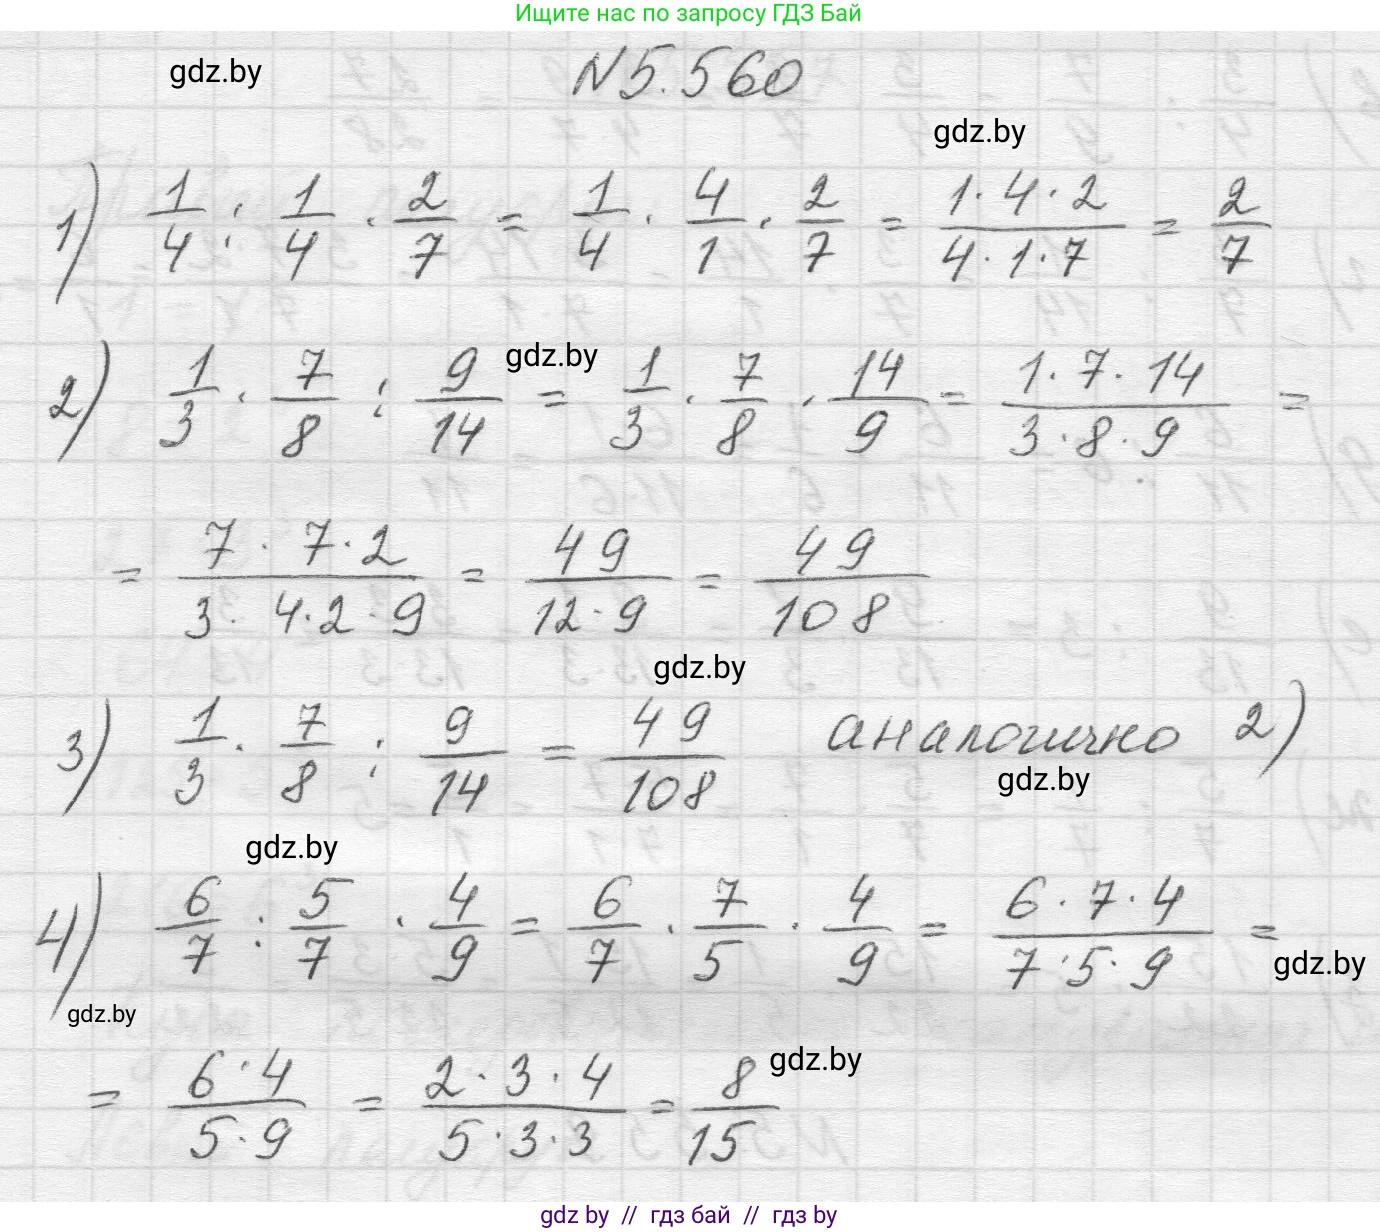 Ищите нас по запросу ГДЗ Бай
gdz.by
N5.560
gdz.by
1) 1/4 : 1/4 · 2/7 = 1/4 · 4/1 · 2/7 = 1·4·2/4·1·7 = 2/7
gdz.by
2) 1/3 · 7/8 : 9/14 = 1/3 · 7/8 · 14/9 = 1·7·14/3·8·9 =
= 7·7·2/3·4·2·9 = 49/12·9 = 49/108
gdz.by
3) 1/3 · 7/8 : 9/14 = 49/108 аналогично 2)
gdz.by
gdz.by
4) 6/7 : 5/7 · 4/9 = 6/7 · 7/5 · 4/9 = 6·7·4/7·5·9 =
gdz.by
gdz.by
= 6·4/5·9 = 2·3·4/5·3·3 = 8/15
gdz.by
gdz by // гдз бай // гдз by